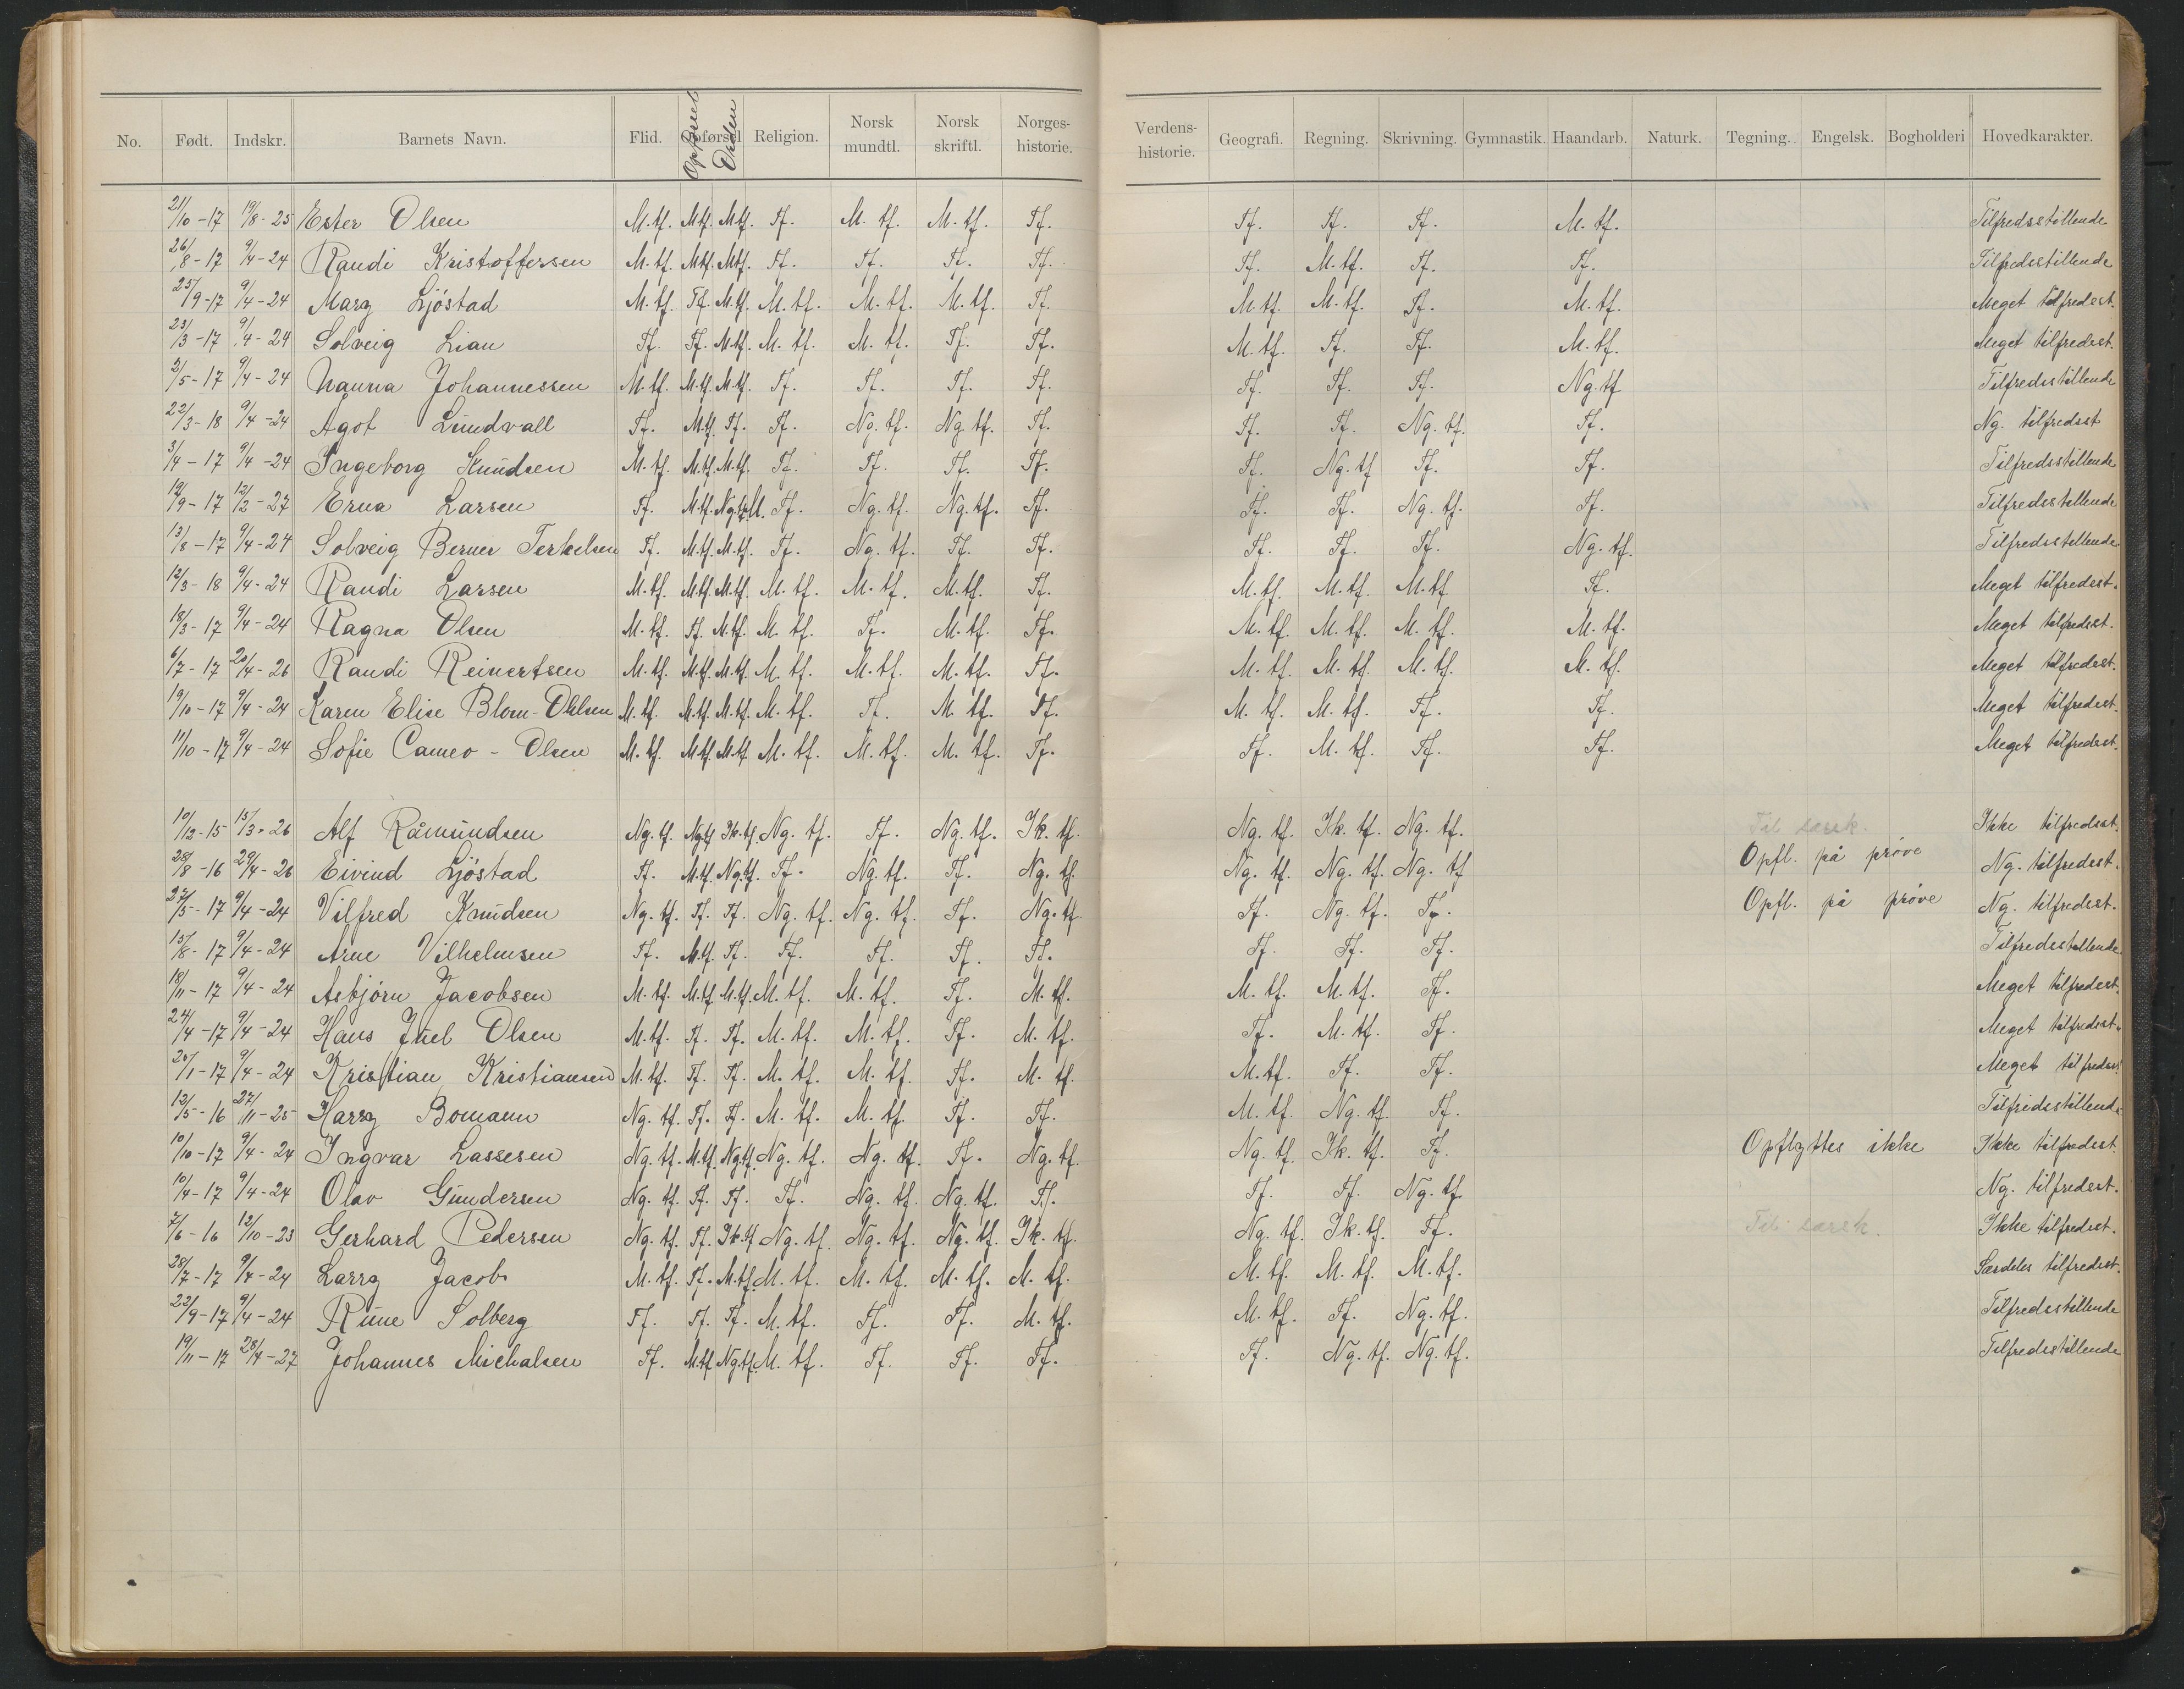 No. Født. Indskr. Barnets Navn. Flid. Opførsel Opførsel Orden Religion. Norsk mundtl. Norsk skriftl. Norges-historie. Verdens-historie. Geografi. Regning. Skrivning. Gymnastik. Haandarb. Naturk. Tegning. Engelsk. Bogholderi Hovedkarakter.
21/10-17 19/8-25 Ester Olsen M.tf. M.tf. M.tf. Tf. M.tf. M.tf. Tf. Tf. Tf. Tf. M.tf. Tilfredsstillende
26/8-17 9/4-24 Randi Kristoffersen M.tf. M.tf. M.tf. Tf. Tf. Tf. Tf. Tf. M.tf. Tf. Tf. Tilfredsstillende
25/9-17 9/4-24 Mary Ljöstad M.tf. Tf. M.tf. M.tf. M.tf. M.tf. Tf. M.tf. M.tf. Tf. M.tf. Meget tilfredsst.
23/3-17 9/4-24 Solveig Lian Tf. Tf. M.tf. M.tf. M.tf. Tf. Tf. M.tf. Tf. Tf. M.tf. Meget tilfredsst.
2/5-17 9/4-24 Nanna Johannessen M.tf. M.tf. M.tf. Tf. Tf. Tf. Tf. Tf. Tf. Tf. Ng.tf Tilfredsstillende
22/3-18 9/4-24 Agot Lundvall Tf. M.tf. Tf. Tf. Ng.tf. Ng.tf. Tf. Tf. Tf. Ng.tf. Tf. Ng. tilfredsst
3/4-17 9/4-24 Ingeborg Knudsen M.tf. M.tf. M.tf. Tf. Tf. Tf. Tf. Tf. Ng.tf Tf. Tf. Tilfredsstillende
19/9-17 12/2-27 Erna Larsen Tf. M.tf. Ng.tf. Tf. Ng.tf. Ng.tf. Tf. Tf. Tf. Ng.tf. Tf. Tilfredsstillende
13/8-17 9/4-24 Solveig Berner Terkelsen Tf. M.tf. M.tf. Tf. Ng.tf. Tf. Tf. Tf. Tf. Tf. Ng.tf. Tilfredsstillende
12/3-18 9/4-24 Randi Larsen M.tf. M.tf. M.tf. M.tf. M.tf. M.tf. Tf. M.tf. M.tf. M.tf Tf. Meget tilfredsst.
18/3-17 9/4-24 Ragna Olsen M.tf. Tf. M.tf. M.tf. Tf. M.tf. Tf. M.tf. M.tf. M.tf. M.tf. Meget tilfredsst.
6/7-17 20/4-26 Randi Reinertsen M.tf. M.tf. M.tf. M.tf. M.tf. M.tf. Tf. M.tf. M.tf. M.tf. M.tf. Meget tilfredsst.
19/10-17 9/4-24 Karen Elise Blom-Ohlsen M.tf. M.tf. M.tf. M.tf. Tf. M.tf. Tf. M.tf. M.tf. Tf. Tf. Meget tilfredsst.
11/10-17 9/4-24 Sofie Cameo-Olsen M.tf. M.tf. M.tf. M.tf. M.tf. M.tf. Tf. Tf. M.tf. Tf. Tf. Meget tilfredsst.
10/12-15 15/3-26 Alf Råmundsen Ng.tf. Ng.tf Ik.tf. Ng.tf. Tf. Ng.tf. Ik.tf. Ng.tf. Ik.tf. Ng.tf. Til særk. Ikke tilfredsst.
28/8-16 29/4-26 Eivind Ljöstad Tf. M.tf. Ng.tf. Tf. Ng.tf. Tf. Ng.tf. Ng.tf. Ng.tf. Ng.tf Opfl. på prøve Ng. tilfredsst.
27/5-17 9/4-24 Vilfred Knudsen Ng.tf. Tf. Tf. Ng.tf. Ng.tf. Tf. Ng.tf. Tf. Ng.tf. Tf. Opfl. på prøve Ng. tilfredsst.
15/8-17 9/4-24 Arne Vilhelmsen Tf. M.tf. Tf. Tf. Tf. Tf. Tf. Tf. Tf. Tf. Tilfredsstillende
18/11-17 9/4-24 Asbjörn Jacobsen M.tf. M.tf. M.tf. M.tf. M.tf. Tf. M.tf. M.tf. M.tf. Tf. Meget tilfredsst.
24/4-17 9/4-24 Hans Juel Olsen M.tf. Tf. Tf. M.tf. M.tf. Tf. M.tf. Tf. M.tf. Tf. Meget tilfredsst.
20/1-17 9/4-24 Kristian Kristiansen M.tf. Tf. Tf. M.tf. M.tf. Tf. M.tf. M.tf. Tf. Tf. Meget tilfredsst
13/5-16 27/11-25 Harry Bomann Ng.tf. Tf. Tf. M.tf. M.tf. Tf. Tf. M.tf. Ng.tf. Tf. Tilfredsstillende
10/10-17 9/4-24 Ingvar Lassesen Ng.tf. M.tf. Ng.tf. Ng.tf. Ng.tf. Tf. Ng.tf. Ng.tf. Ik.tf. Tf. Opflyttes ikke Ikke tilfredsst.
10/4-17 9/4-24 Olav Gundersen Ng.tf. Tf. Tf. Tf. Ng.tf. Ng.tf. Tf. Tf. Tf. Ng.tf. Ng. tilfredsst.
7/6-16 12/10-23 Gerhard Pedersen Ng.tf. Tf. Ik.tf Ng.tf. Ng.tf. Ng.tf. Ik.tf. Ng.tf. Ik.tf. Tf. Til særk. Ikke tilfredsst.
28/7-17 9/4-24 Larry Jacobs M.tf. Tf. M.tf. M.tf. M.tf. M.tf. M.tf. M.tf. M.tf. M.tf. Særdeles tilfredsst.
22/9-17 9/4-24 Rune Solberg Tf. Tf. Tf. M.tf. Tf. Tf. M.tf. M.tf. Tf. Ng.tf. Tilfredsstillende
19/11-17 28/4-27 Johannes Michalsen Tf. M.tf Ng.tf. M.tf. Tf. Tf. Tf. Tf. Ng.tf. Ng.tf. Tilfredsstillende